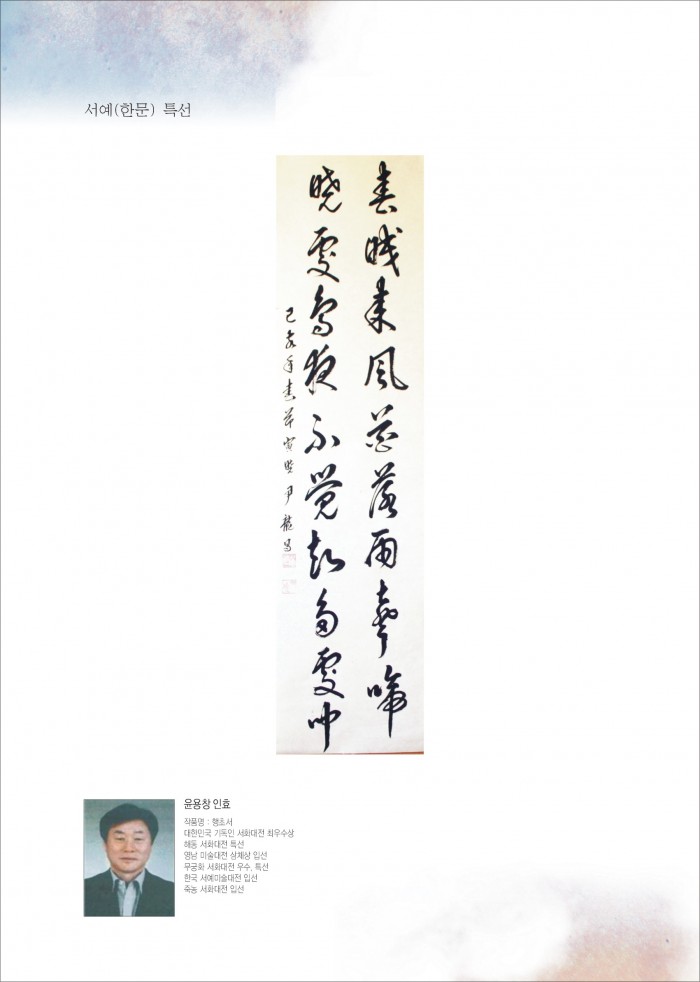 서예(한문) 특선
春眠來風花落雨聲啼
曉處鳥夜不覺知多處聞
己亥年春 尹龍昌
윤용창 인효
작품명 : 행초서
대한민국 기독인 서화대전 최우수상
해동 서화대전 특선
영남 미술대전 삼체상 입선
무궁화 서화대전 우수, 특선
한국 서예미술대전 입선
죽농 서화대전 입선